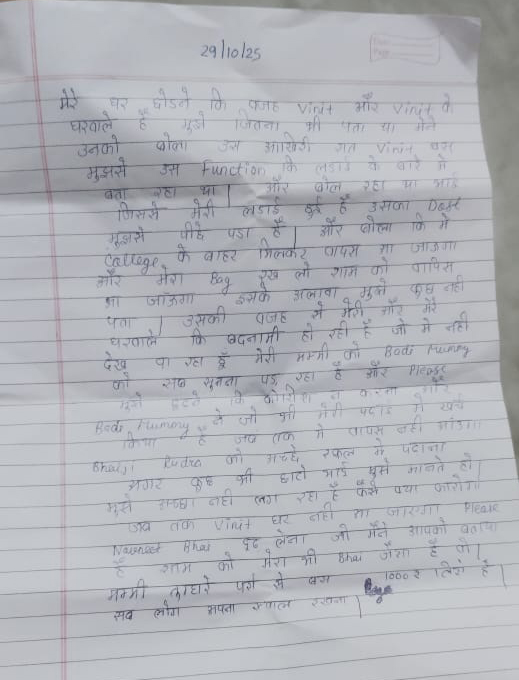 29/10/25
मेरे घर छोडने कि वजह Vinit और Vinit के
घरवाले हैं मुझे जितना भी पता था मैने
उनको बोला उस आखिरी रात Vinit बस
मुझसे उस Function कि लडाई के बारे मे
बता रहा था| और बोल रहा था भाई
जिससे मेरी लडाई हुई हैं उसका Dost
मुझसे पीछे पडा हैं| और बोला कि मे
College के बाहर मिलकर वापस आ जाऊगा
और मेरा Bag रख लो शाम को वापिस
आ जाऊंगा इसके अलावा मुझे कुछ नही
पता| उसकी वजह से मेरी और मेरे
घरवाले कि बदनामी हो रही हैं जो मे नही
देख पा रहा हूँ मेरी मम्मी को Badi Mummy
को सब सुनना पड़ रहा हैं और Please
मुझे ढूढने कि कोशिश न करना और
Badi Mummy ने जो भी मेरी पढाई मे खर्च
किया हैं जब तक मे वापस नही आऊंगा
Bhaiji Rudra को अच्छे स्कूल मे पढाना
अगर कुछ भी छोटा भाई मुझे मानते हो|
मुझे अच्छा नही लग रहा हैं कैसे क्या करोगे
जब तक Vinit घर नही आ जाएगा Please
Navneet Bhai ढूढ लेना जो मैंने आपको बताया
हैं शाम को मेरा भी Bhai जैसा हैं वो|
मम्मी तुम्हारे पर्स से बस 1000₹ लिये हैं
सब लोग अपना ख्याल रखना|